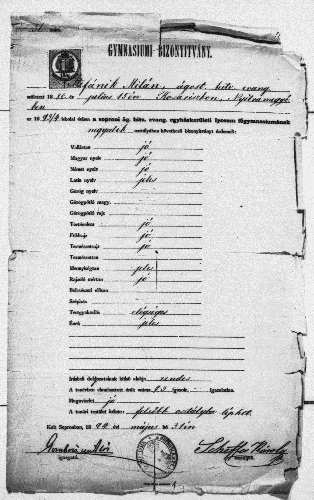 GYMNASIUMI BIZONYITVÁNY.
Stefánik Milán, ágost. hitv. evang.
született 18 80 év julius 15én Kosariszkon, Nyitramegyé-
ben
az 18 93/4 iskolai évben a soproni ág. hitv. evang. egyházkerületi lyceum főgymnasiumának
negyedik osztályában következő bizonyítványt érdemelt:
Vallástan jó
Magyar nyelv jó
Német nyelv jó
Latin nyelv jeles
Görög nyelv
Görögpótló magy.
Görögpótló rajz
Történelem jó
Földrajz jó
Természetrajz jó
Természettan
Mennyiségtan jeles
Rajzoló mértan jó
Bölcsészeti előtan
Szépirás
Tornagyakorlás elégséges
Ének jeles
Irásbeli dolgozatainak külső alakja rendes
A tanévben elmulasztott órák száma 23 igazolt, – igazolatlan.
Magaviselet jó
A tanári testület itélete: felsőbb osztályba léphet.
Kelt Sopronban, 18 94 év május 31én
igazgató.
osztályfő.